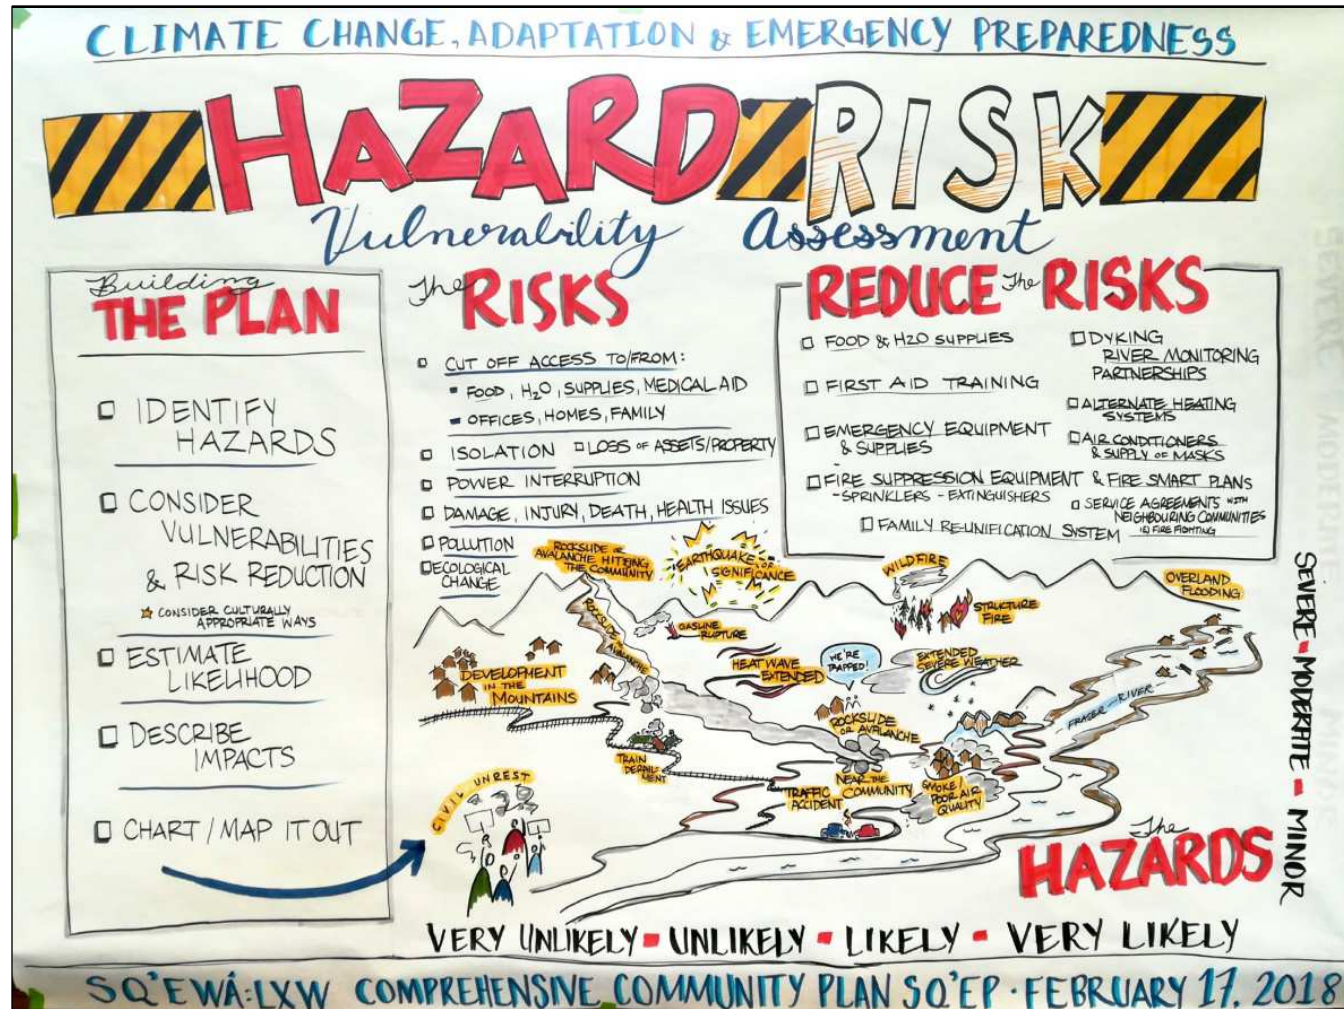 CLIMATE CHANGE, ADAPTATION & EMERGENCY PREPAREDNESS
HAZARD RISK
Vulnerability Assessment
Building
THE PLAN
□ IDENTIFY
HAZARDS
□ CONSIDER
VULNERABILITIES
& RISK REDUCTION
★ CONSIDER CULTURALLY
APPROPRIATE WAYS
□ ESTIMATE
LIKELIHOOD
□ DESCRIBE
IMPACTS
□ CHART / MAP IT OUT
The RISKS
□ CUT OFF ACCESS TO/FROM:
▪ FOOD, H2O, SUPPLIES, MEDICAL AID
▪ OFFICES, HOMES, FAMILY
□ ISOLATION □ LOSS OF ASSETS/PROPERTY
□ POWER INTERRUPTION
□ DAMAGE, INJURY, DEATH, HEALTH ISSUES
□ POLLUTION
□ ECOLOGICAL
CHANGE
REDUCE The RISKS
□ FOOD & H2O SUPPLIES
□ FIRST AID TRAINING
□ EMERGENCY EQUIPMENT
& SUPPLIES
□ DYKING
RIVER MONITORING
PARTNERSHIPS
□ ALTERNATE HEATING
SYSTEMS
□ AIR CONDITIONERS
& SUPPLY OF MASKS
□ FIRE SUPPRESSION EQUIPMENT & FIRE SMART PLANS
- SPRINKLERS - EXTINGUISHERS
□ SERVICE AGREEMENTS WITH
NEIGHBOURING COMMUNITIES
IN FIRE FIGHTING
□ FAMILY REUNIFICATION SYSTEM
ROCKSLIDE OR
AVALANCHE HITTING
THE COMMUNITY
EARTHQUAKE OF
SIGNIFICANCE
WILDFIRE
STRUCTURE
FIRE
OVERLAND
FLOODING
ROCKSLIDE
AVALANCHE
GASLINE
RUPTURE
HEAT WAVE
EXTENDED
WE'RE
TRAPPED!
EXTENDED
SEVERE WEATHER
DEVELOPMENT
IN THE
MOUNTAINS
FRASER-RIVER
ROCKSLIDE
OR AVALANCHE
NEAR THE
COMMUNITY
TRAIN
DERAIL-
MENT
TRAFFIC
ACCIDENT
SMOKE/
POOR AIR
QUALITY
CIVIL UNREST
The
HAZARDS
SEVERE - MODERATE - MINOR
VERY UNLIKELY - UNLIKELY - LIKELY - VERY LIKELY
SQ'EWÁ:LXW COMPREHENSIVE COMMUNITY PLAN SQ'EP · FEBRUARY 17. 2018